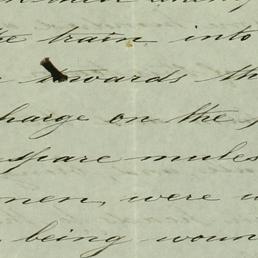 the train into
towards th
harge on the
spare mules
men, were w
being woun